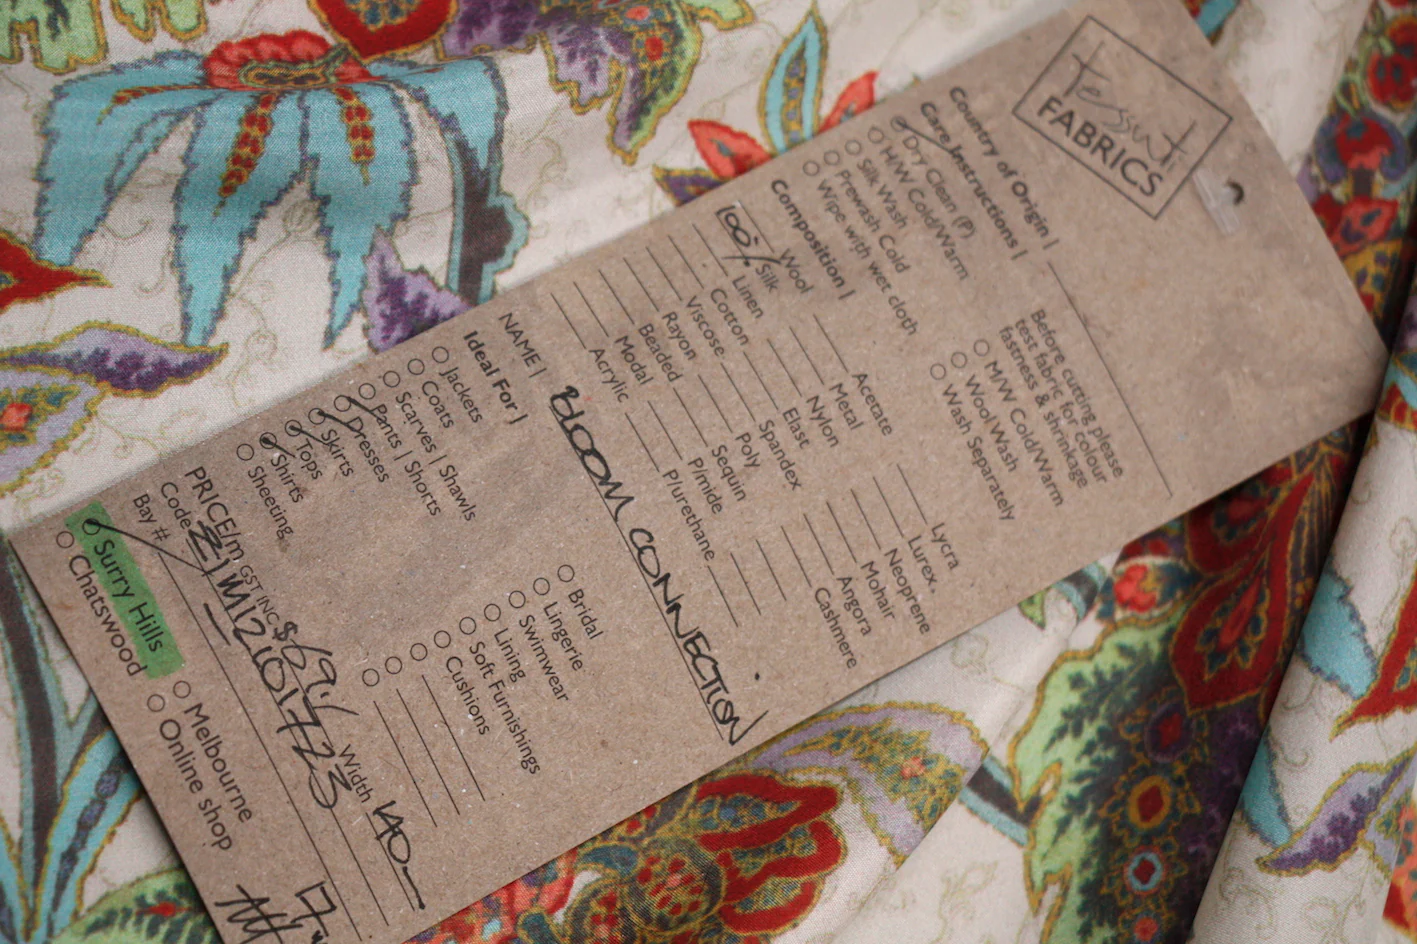 Tessuti
FABRICS
Country of Origin |
Care Instructions |
Dry Clean (P)
H/W Cold/Warm
Silk Wash
Prewash Cold
Wipe with wet cloth
Before cutting please
test fabric for colour
fastness & shrinkage
M/W Cold/Warm
Wool Wash
Wash Separately
Composition |
Wool
100% Silk
Linen
Cotton
Viscose
Rayon
Beaded
Modal
Acrylic
Acetate
Metal
Nylon
Elast
Spandex
Poly
Sequin
P/mide
P/urethane
Lycra
Lurex.
Neoprene
Mohair
Angora
Cashmere
NAME | BLOOM CONNECTION
Ideal For |
Jackets
Coats
Scarves | Shawls
Pants | Shorts
Dresses
Skirts
Tops
Shirts
Sheeting
Bridal
Lingerie
Swimwear
Lining
Soft Furnishings
Cushions
PRICE/m GST INC $69 Width 140
Code
Bay #
Surry Hills
Chatswood
Melbourne
Online shop